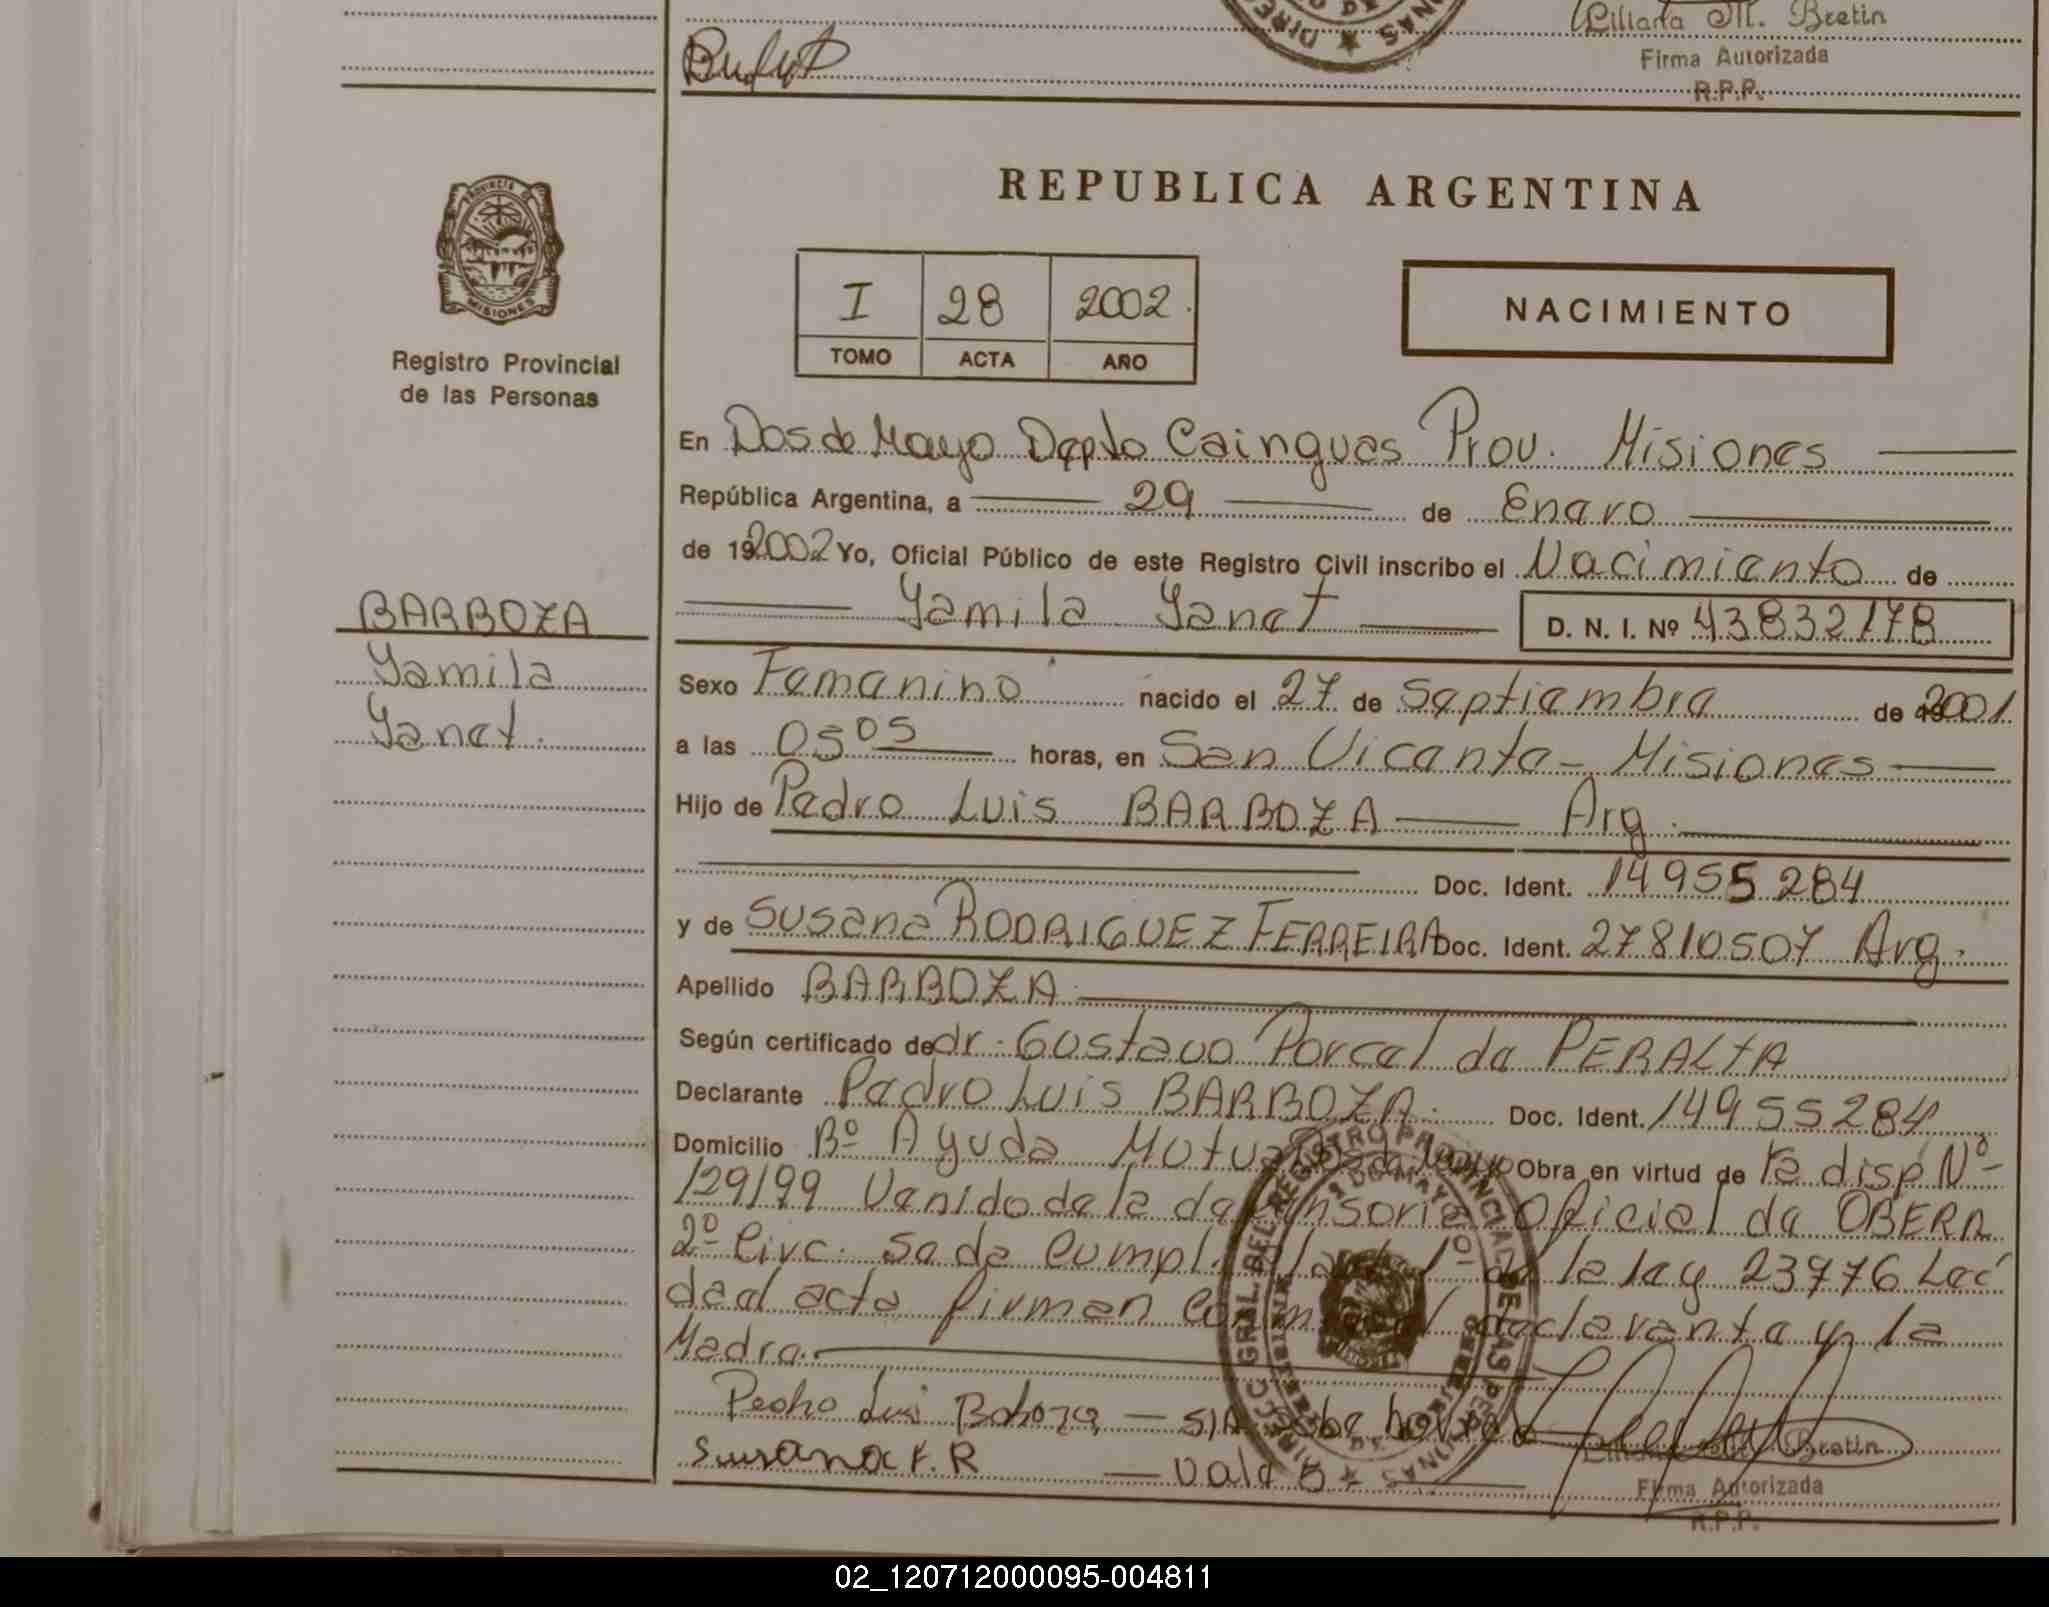 Liliana M. Bretin
Firma Autorizada
R.P.P.
DIREC
ONAS
PROVINCIA DE
MISIONES
Registro Provincial
de las Personas
REPUBLICA ARGENTINA
I 28 2002.
TOMO ACTA AÑO
NACIMIENTO
En Dos de Mayo Depto Cainguas Prov. Misiones
República Argentina, a 29 de Enero
de 192002 Yo, Oficial Público de este Registro Civil inscribo el Nacimiento de
Yamila Yanet D. N. I. Nº 43832178
BARBOZA
Yamila
Yanet.
Sexo Femenino nacido el 27 de Septiembre de 192001
a las 05 05 horas, en San Vicente - Misiones
Hijo de Pedro Luis BARBOZA Arg.
Doc. Ident. 14955284
y de Susana RODRIGUEZ FERREIRA Doc. Ident. 27810507 Arg.
Apellido BARBOZA
Según certificado de dr. Gustavo Porcel de PERALTA
Declarante Pedro Luis BARBOZA. Doc. Ident. 14955284
Domicilio Bº Ayuda Mutua Obra en virtud de la disp Nº
129/99 Venido de la defensoria Oficial de OBERA
2º Circ. se da cumpli 1º de la ley 23776 Leí
da el acta firman el declarante y la
Madre.
Pedro Luis Barboza — S/R
Susana F. R — Vale 5
DIRECC GRAL. DEL REGISTRO PROVINCIAL DE LAS PERSONAS
2 DE MAYO
Bretin
Firma Autorizada
R.P.P.
02_120712000095-004811